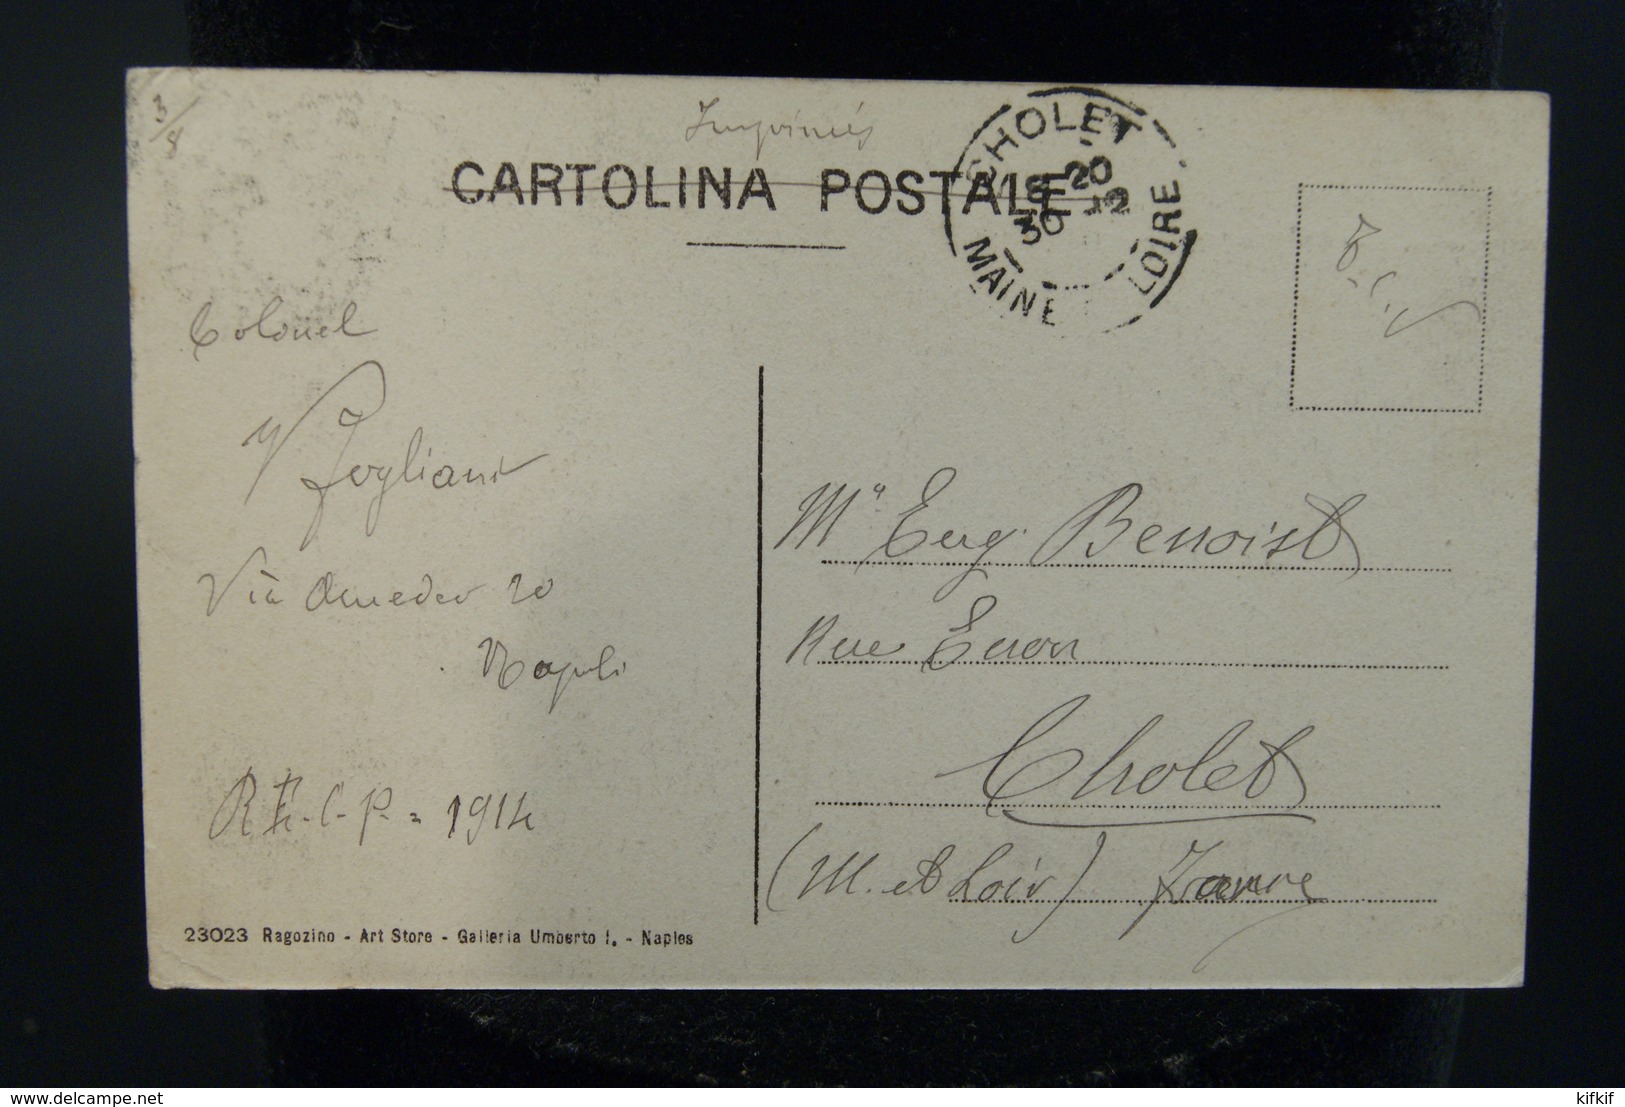 3/8
Imprimés
CARTOLINA POSTALE
CHOLET
18 20
30 -12
MAINE LOIRE
Colonel
V Fogliani
Via Amedeo 20
Napoli
R E.C.P. = 1914
23023 Ragozino - Art Store - Galleria Umberto I. - Naples
Mr Eug. Benoist
Rue Enon
Cholet
(M. et Loire) France
www.delcampe.net
kifkif